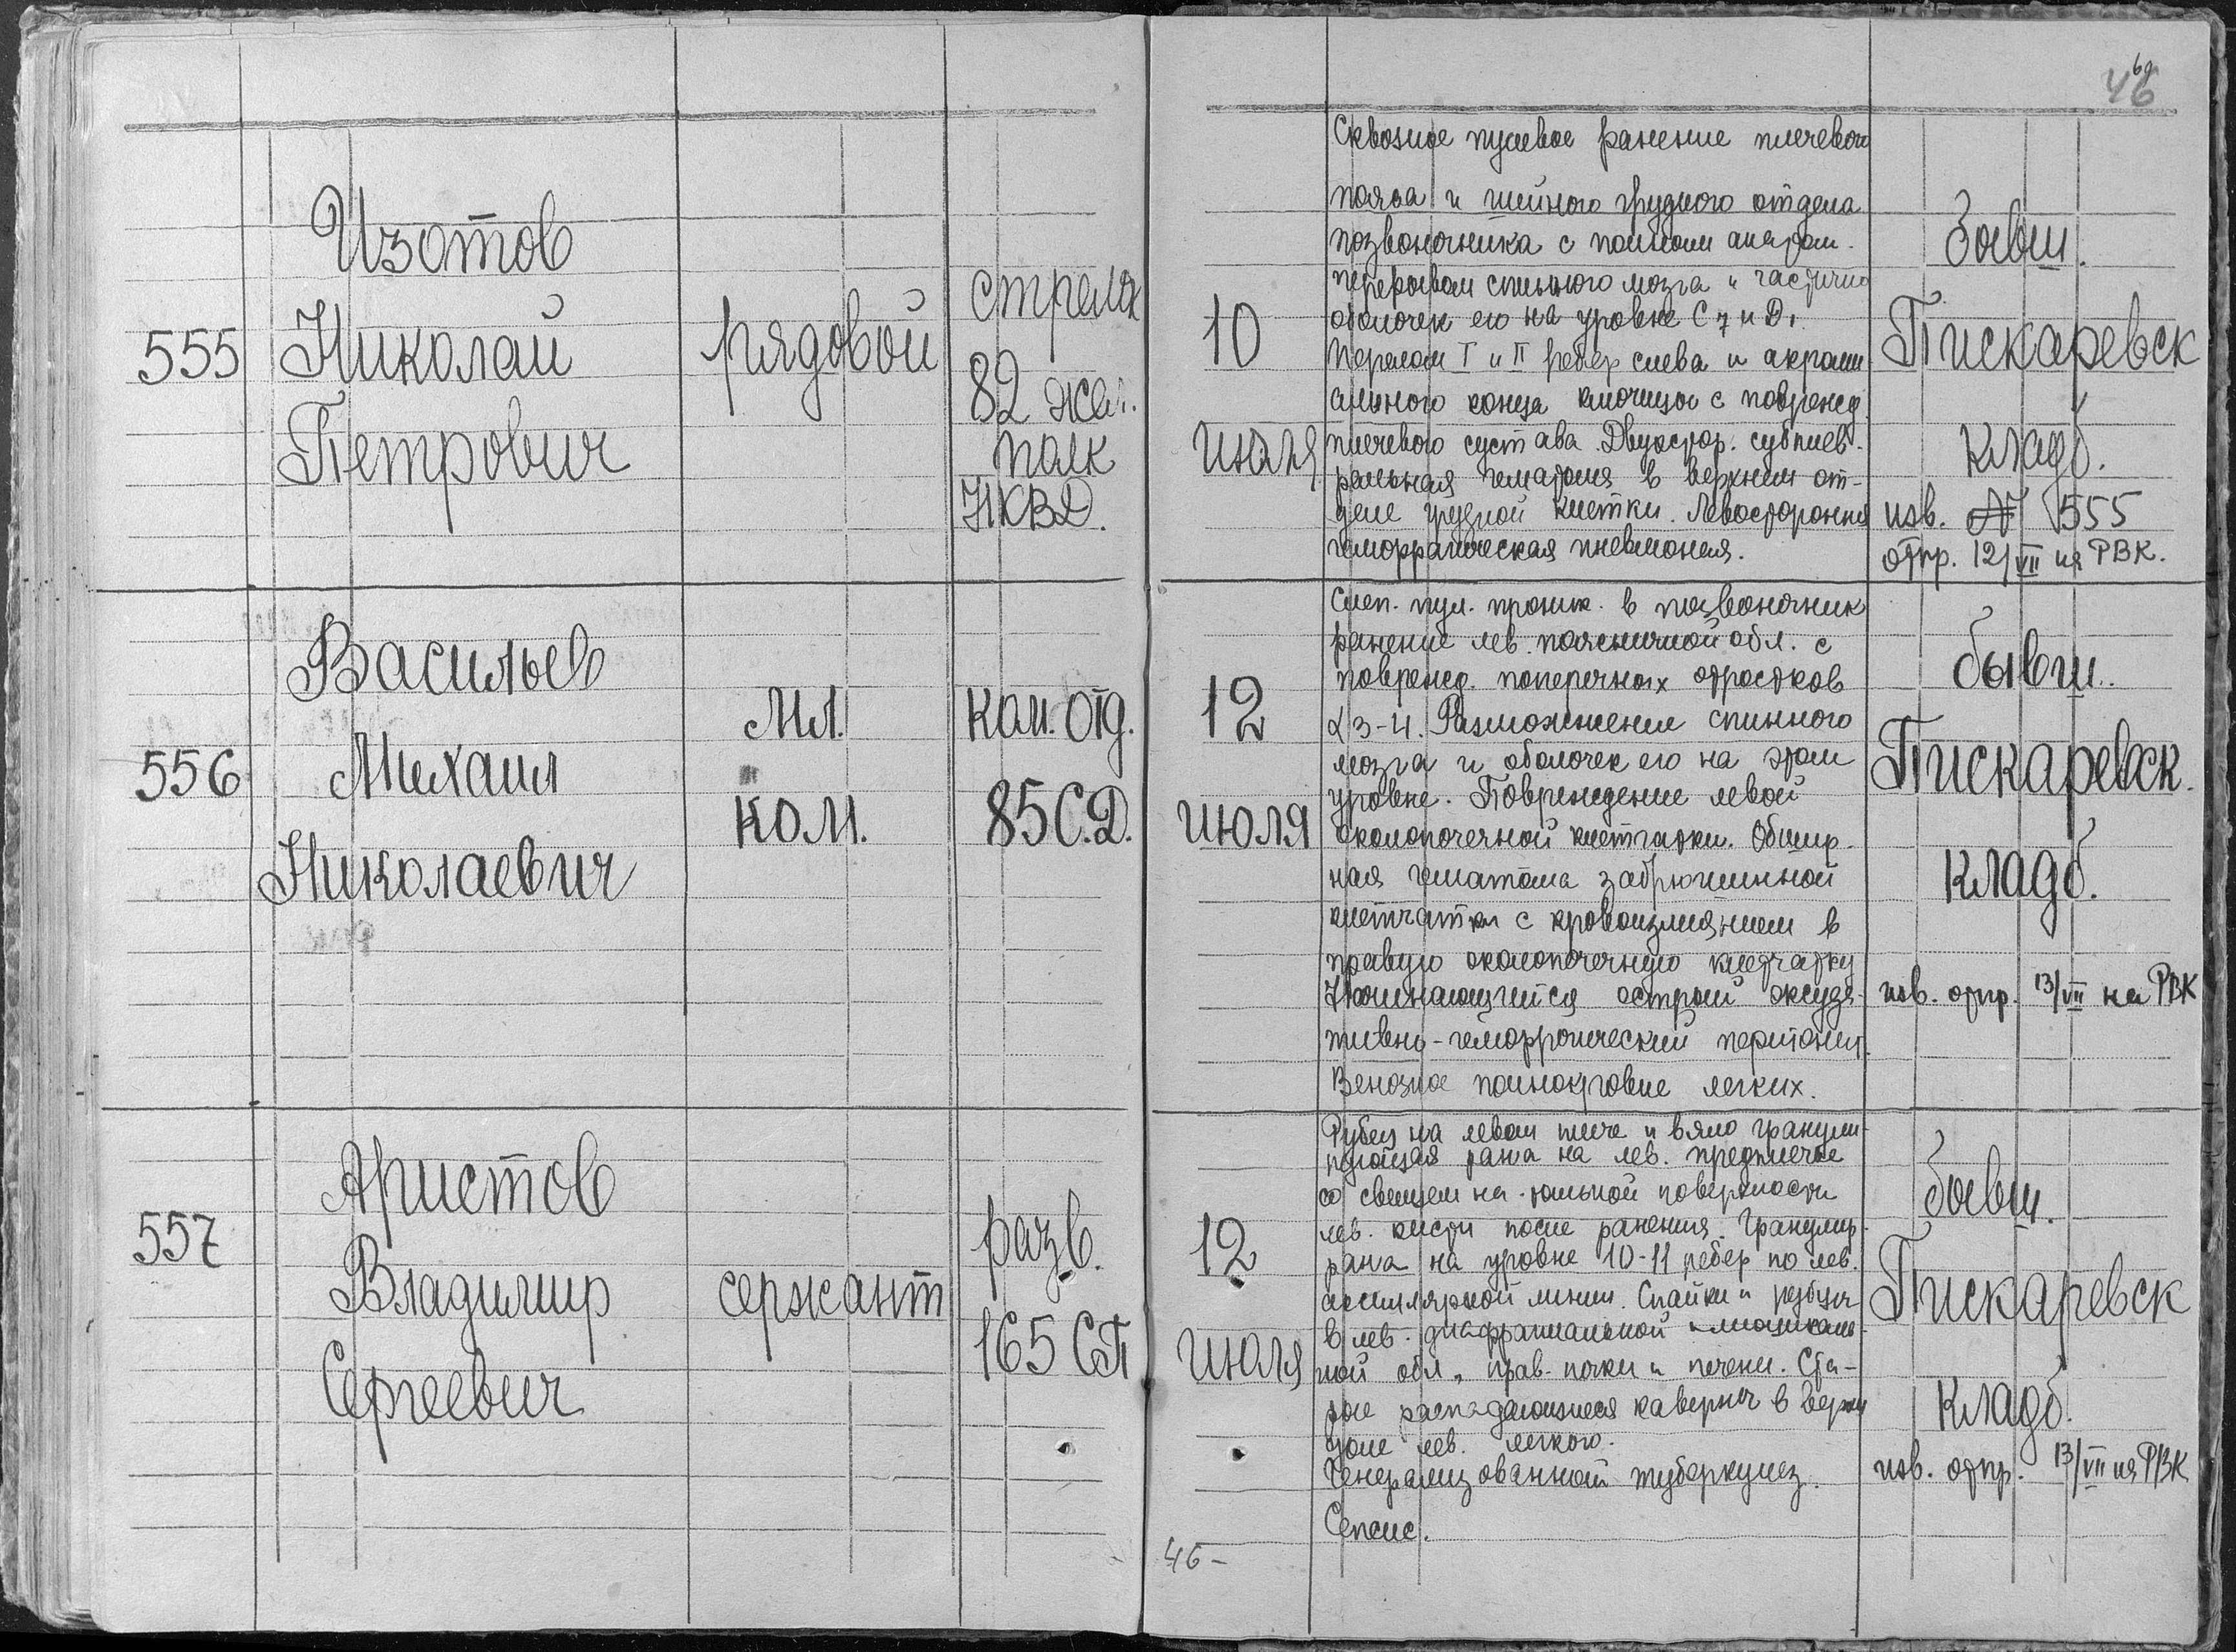 46
Изотов
555 Николай рядовой
Петрович
стрелк
82 жел.
полк
НКВД.
10
июля
Сквозное пулевое ранение плечевого
пояса и шейного грудного отдела
позвоночника с полным анатом.
перерывом спинного мозга и частично
оболочек его на уровне С 7 и D1.
Перелом I и II ребер слева и акроми
ального конца ключицы с поврежд.
плечевого сустава. Двухстор. субплев-
ральная гематома в верхнем от-
деле грудной клетки. Левосторонняя
геморрагическая пневмония.
Бывш.
Пискаревск
кладб.
изв. № 555
отпр. 12/VII на РВК.
Васильев
556 Михаил
Николаевич
мл.
ком.
ком. отд.
85 С.Д.
12
июля
Слеп. пул. проник. в позвоночник
ранение лев. поясничной обл. с
поврежд. поперечных отростков
L 3-4. Размозжение спинного
мозга и оболочек его на этом
уровне. Повреждение левой
околопочечной клетчатки. Обшир-
ная гематома забрюшинной
клетчатки с кровоизлиянием в
правую околопочечную клетчатку
Начинающийся острый эксуда-
тивно-геморрогический перитонит.
Венозное полнокровие легких.
бывш.
Пискаревск.
кладб.
изв. отпр. 13/VII на РВК
Аристов
557
Владимир сержант
Сергеевич
разв.
165 СП
12
июля
Рубец на левом плече и вяло гранули-
рующая рана на лев. предплечье
со свищем на тыльной поверхности
лев. кисти после ранения. Гранулир.
рана на уровне 10-11 ребер по лев.
аксиллярной линии. Спайки и рубцы
в лев. диафрагмальной
ной обл., прав. почки и печени. Ста-
рые распадающиеся каверны в верхн
доле лев. легкого.
Генерализованный туберкулез.
Сепсис.
бывш.
Пискаревск
кладб.
изв. отпр. 13/VII на РВК
46 –